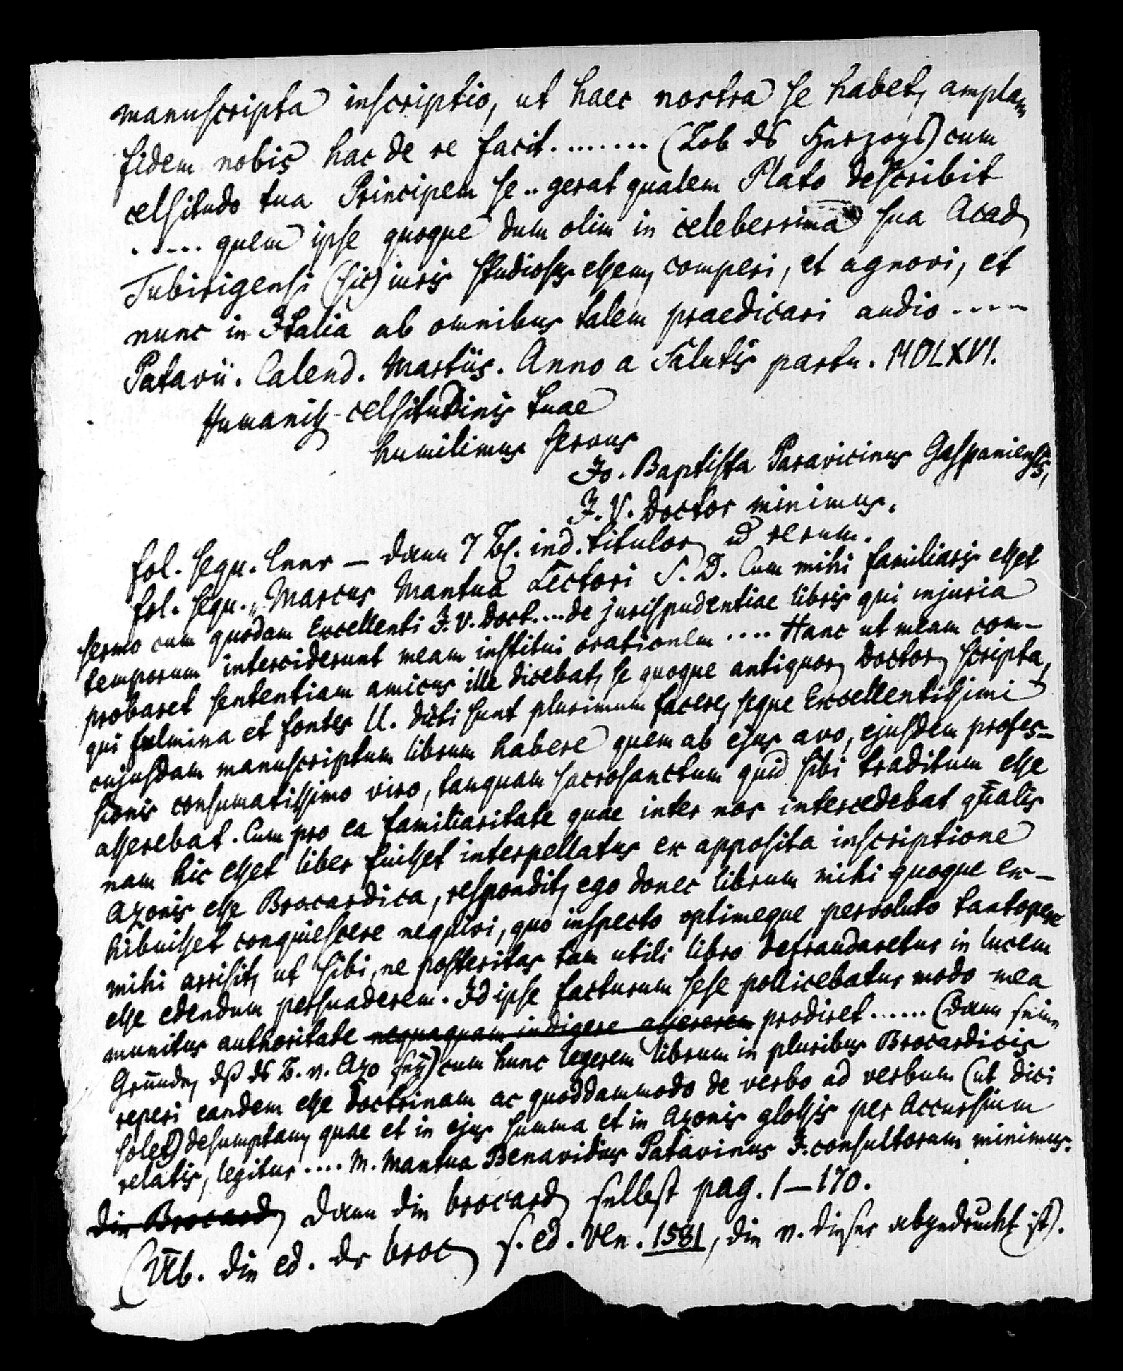 manuscripta inscriptio, ut haec nostra se habet, amplam
fidem nobis hac de re facit. ....... (Lob ds Herzogs) cum
celsitudo tua Principem se .. gerat qualem Plato describit
..... quem ipse quoque dum olim in celeberrima sua Acad
Tubirigensi (sic) iuris studiosus essem, comperi, et agnovi, et
nunc in Italia ab omnibus talem praedicari audio ....
Patavii. Calend. Martiis. Anno a Salutis partu. MDLXVI.
Humaniss celsitudinis tuae
humilimus servus
Jo. Baptista Paravicinus Gaspaniensis,
J. V. Doctor minimus.
fol. sequ. leer — dann 7 Bl. ind. titulor, et rerum.
fol. sequ. „Marcus Mantua Lectori S. D. Cum mihi familiaris esset
sermo cum quodam Excellenti J. V. Doct.... de jurisprudentiae libris qui injuria
temporum interciderunt meam institui orationem .... Hanc ut meam com-
probaret sententiam amicus ille dicebat, se quoque antiquor, Doctor, scripta,
qui fulmina et fontes ll. dicti sunt plurimum facere, seque Excellentissimi
cujusdam manuscriptum librum habere quem ab ejus avo, ejusdem profes-
sionis consumatissimo viro, tanquam sacrosanctum quid sibi traditum esse
asserebat. Cum pro ea familiaritate quae inter nos intercedebat qualis
nam hic esset liber fuisset interpellatus ex apposita inscriptione
Azonis esse Brocardica, respondit, ego donec librum mihi quoque ex-
hibuisset conquiescere nequivi, quo inspecto optimeque pervoluto tantopere
mihi arrisit, ut sibi, ne posteritas tam utili libro defraudaretur in lucem
esse edendum persuaderem. Id ipse facturum sese pollicebatur modo mea
munitus authoritate nequaquam indigere assererem prodiret ...... (dann seine
Gründe, dß ds B. v. Azo sey) cum hunc legerem librum in pluribus Brocardicis
reperi eandem esse doctrinam ac quoddammodo de verbo ad verbum (ut dici
solet) desumptam, quae et in ejus summa et in Azonis glossis per Accursium
relatis, legitur .... M. Mantua Benavidius Patavinus J. consultorum minimus.
die Brocard, dann die brocard, selbst pag. 1—170.
(Üb. die ed. dr broc, s. ed. Ven. 1581, die v. dieser abgedruckt ist).